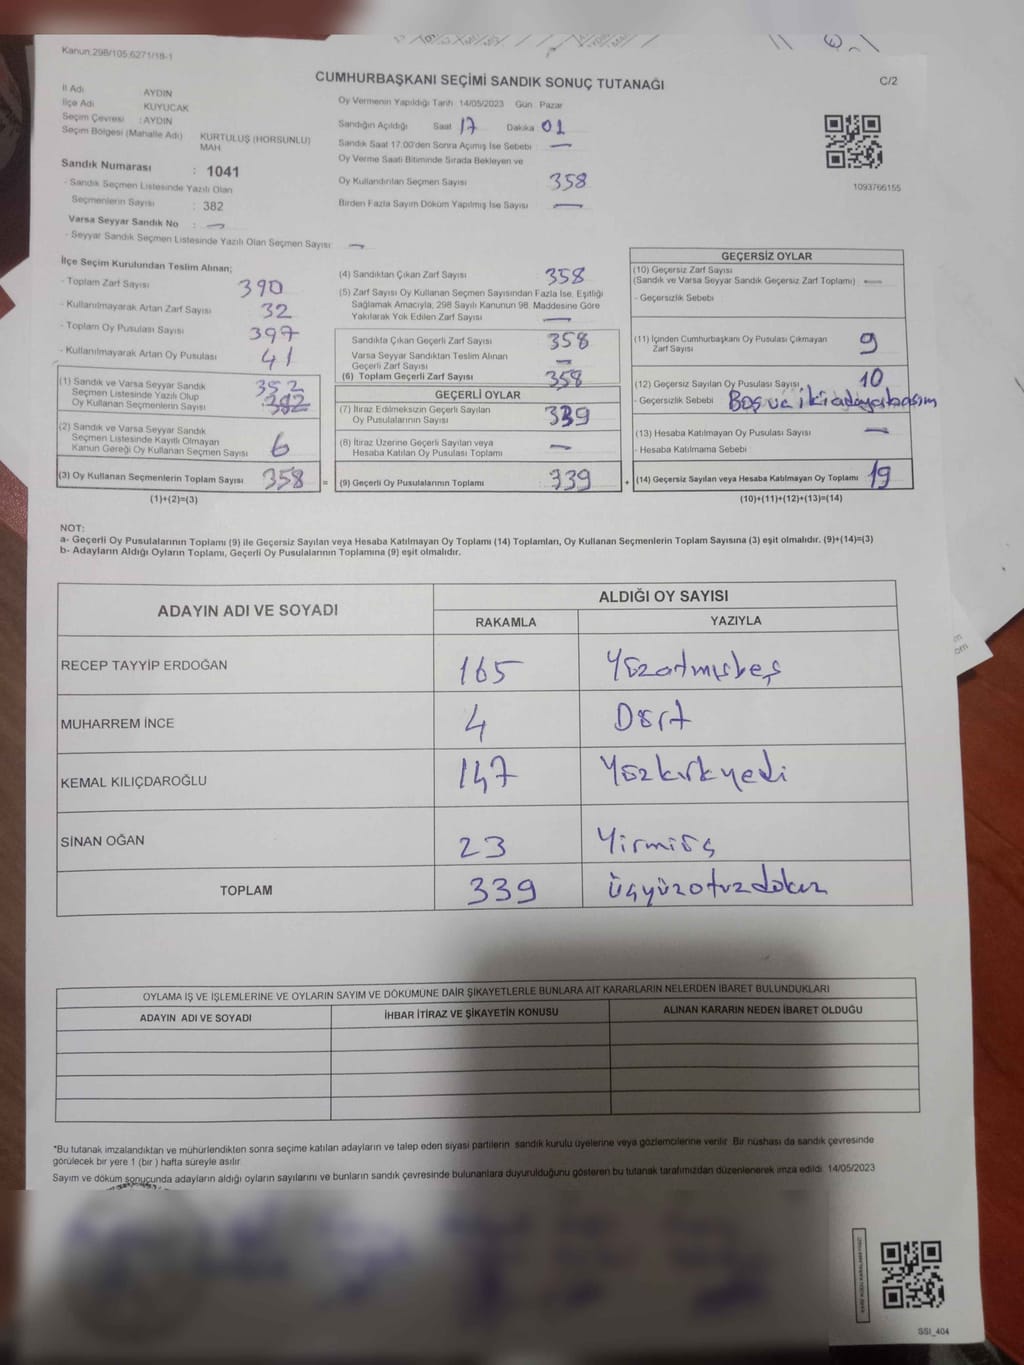 Kanun:298/105;6271/18-1
CUMHURBAŞKANI SEÇİMİ SANDIK SONUÇ TUTANAĞI
C/2
İl Adı AYDIN
İlçe Adı KUYUCAK
Seçim Çevresi :AYDIN
Seçim Bölgesi (Mahalle Adı) KURTULUŞ (HORSUNLU) MAH
Sandık Numarası : 1041
- Sandık Seçmen Listesinde Yazılı Olan
Seçmenlerin Sayısı : 382
Varsa Seyyar Sandık No : —
- Seyyar Sandık Seçmen Listesinde Yazılı Olan Seçmen Sayısı: —
Oy Vermenin Yapıldığı Tarih 14/05/2023 Gün Pazar
Sandığın Açıldığı Saat 17 Dakika 01
Sandık Saat 17.00'den Sonra Açımış İse Sebebi —
Oy Verme Saati Bitiminde Sırada Bekleyen ve
Oy Kullandırılan Seçmen Sayısı 358
Birden Fazla Sayım Döküm Yapılmış İse Sayısı —
1093766155
İlçe Seçim Kurulundan Teslim Alınan;
- Toplam Zarf Sayısı 390
- Kullanılmayarak Artan Zarf Sayısı 32
- Toplam Oy Pusulası Sayısı 397
- Kullanılmayarak Artan Oy Pusulası 41
(1) Sandık ve Varsa Seyyar Sandık 352
Seçmen Listesinde Yazılı Olup
Oy Kullanan Seçmenlerin Sayısı
(2) Sandık ve Varsa Seyyar Sandık
Seçmen Listesinde Kayıtlı Olmayan
Kanun Gereği Oy Kullanan Seçmen Sayısı 6
(3) Oy Kullanan Seçmenlerin Toplam Sayısı 358 =
(1)+(2)=(3)
(4) Sandıktan Çıkan Zarf Sayısı 358
(5) Zarf Sayısı Oy Kullanan Seçmen Sayısından Fazla İse, Eşitliği
Sağlamak Amacıyla, 298 Sayılı Kanunun 98. Maddesine Göre
Yakılarak Yok Edilen Zarf Sayısı —
Sandıkta Çıkan Geçerli Zarf Sayısı 358
Varsa Seyyar Sandıktan Teslim Alınan
Geçerli Zarf Sayısı —
(6) Toplam Geçerli Zarf Sayısı 358
GEÇERLİ OYLAR
(7) İtiraz Edilmeksizin Geçerli Sayılan
Oy Pusulalarının Sayısı 339
(8) İtiraz Üzerine Geçerli Sayılan veya
Hesaba Katılan Oy Pusulası Toplamı —
(9) Geçerli Oy Pusulalarının Toplamı 339 +
GEÇERSİZ OYLAR
(10) Geçersiz Zarf Sayısı
(Sandık ve Varsa Seyyar Sandık Geçersiz Zarf Toplamı) —
- Geçersizlik Sebebi
(11) İçinden Cumhurbaşkanı Oy Pusulası Çıkmayan
Zarf Sayısı 9
(12) Geçersiz Sayılan Oy Pusulası Sayısı 10
- Geçersizlik Sebebi Boş ve iki adaya basım
(13) Hesaba Katılmayan Oy Pusulası Sayısı —
- Hesaba Katılmama Sebebi
(14) Geçersiz Sayılan veya Hesaba Katılmayan Oy Toplamı 19
(10)+(11)+(12)+(13)=(14)
NOT:
a- Geçerli Oy Pusulalarının Toplamı (9) ile Geçersiz Sayılan veya Hesaba Katılmayan Oy Toplamı (14) Toplamları, Oy Kullanan Seçmenlerin Toplam Sayısına (3) eşit olmalıdır. (9)+(14)=(3)
b- Adayların Aldığı Oyların Toplamı, Geçerli Oy Pusulalarının Toplamına (9) eşit olmalıdır.
ADAYIN ADI VE SOYADI ALDIĞI OY SAYISI
RAKAMLA YAZIYLA
RECEP TAYYİP ERDOĞAN 165 Yüzatmışbeş
MUHARREM İNCE 4 Dört
KEMAL KILIÇDAROĞLU 147 Yüzkırkyedi
SİNAN OĞAN 23 Yirmiüç
TOPLAM 339 üçyüzotuzdokuz
OYLAMA İŞ VE İŞLEMLERİNE VE OYLARIN SAYIM VE DÖKÜMÜNE DAİR ŞİKAYETLERLE BUNLARA AİT KARARLARIN NELERDEN İBARET BULUNDUKLARI
ADAYIN ADI VE SOYADI İHBAR İTİRAZ VE ŞİKAYETİN KONUSU ALINAN KARARIN NEDEN İBARET OLDUĞU
*Bu tutanak imzalandıktan ve mühürlendikten sonra seçime katılan adayların ve talep eden siyasi partilerin sandık kurulu üyelerine veya gözlemcilerine verilir. Bir nüshası da sandık çevresinde
görülecek bir yere 1 (bir ) hafta süreyle asılır.
Sayım ve döküm sonucunda adayların aldığı oyların sayılarını ve bunların sandık çevresinde bulunanlara duyurulduğunu gösteren bu tutanak tarafımızdan düzenlenerek imza edildi. 14/05/2023
SSI_404